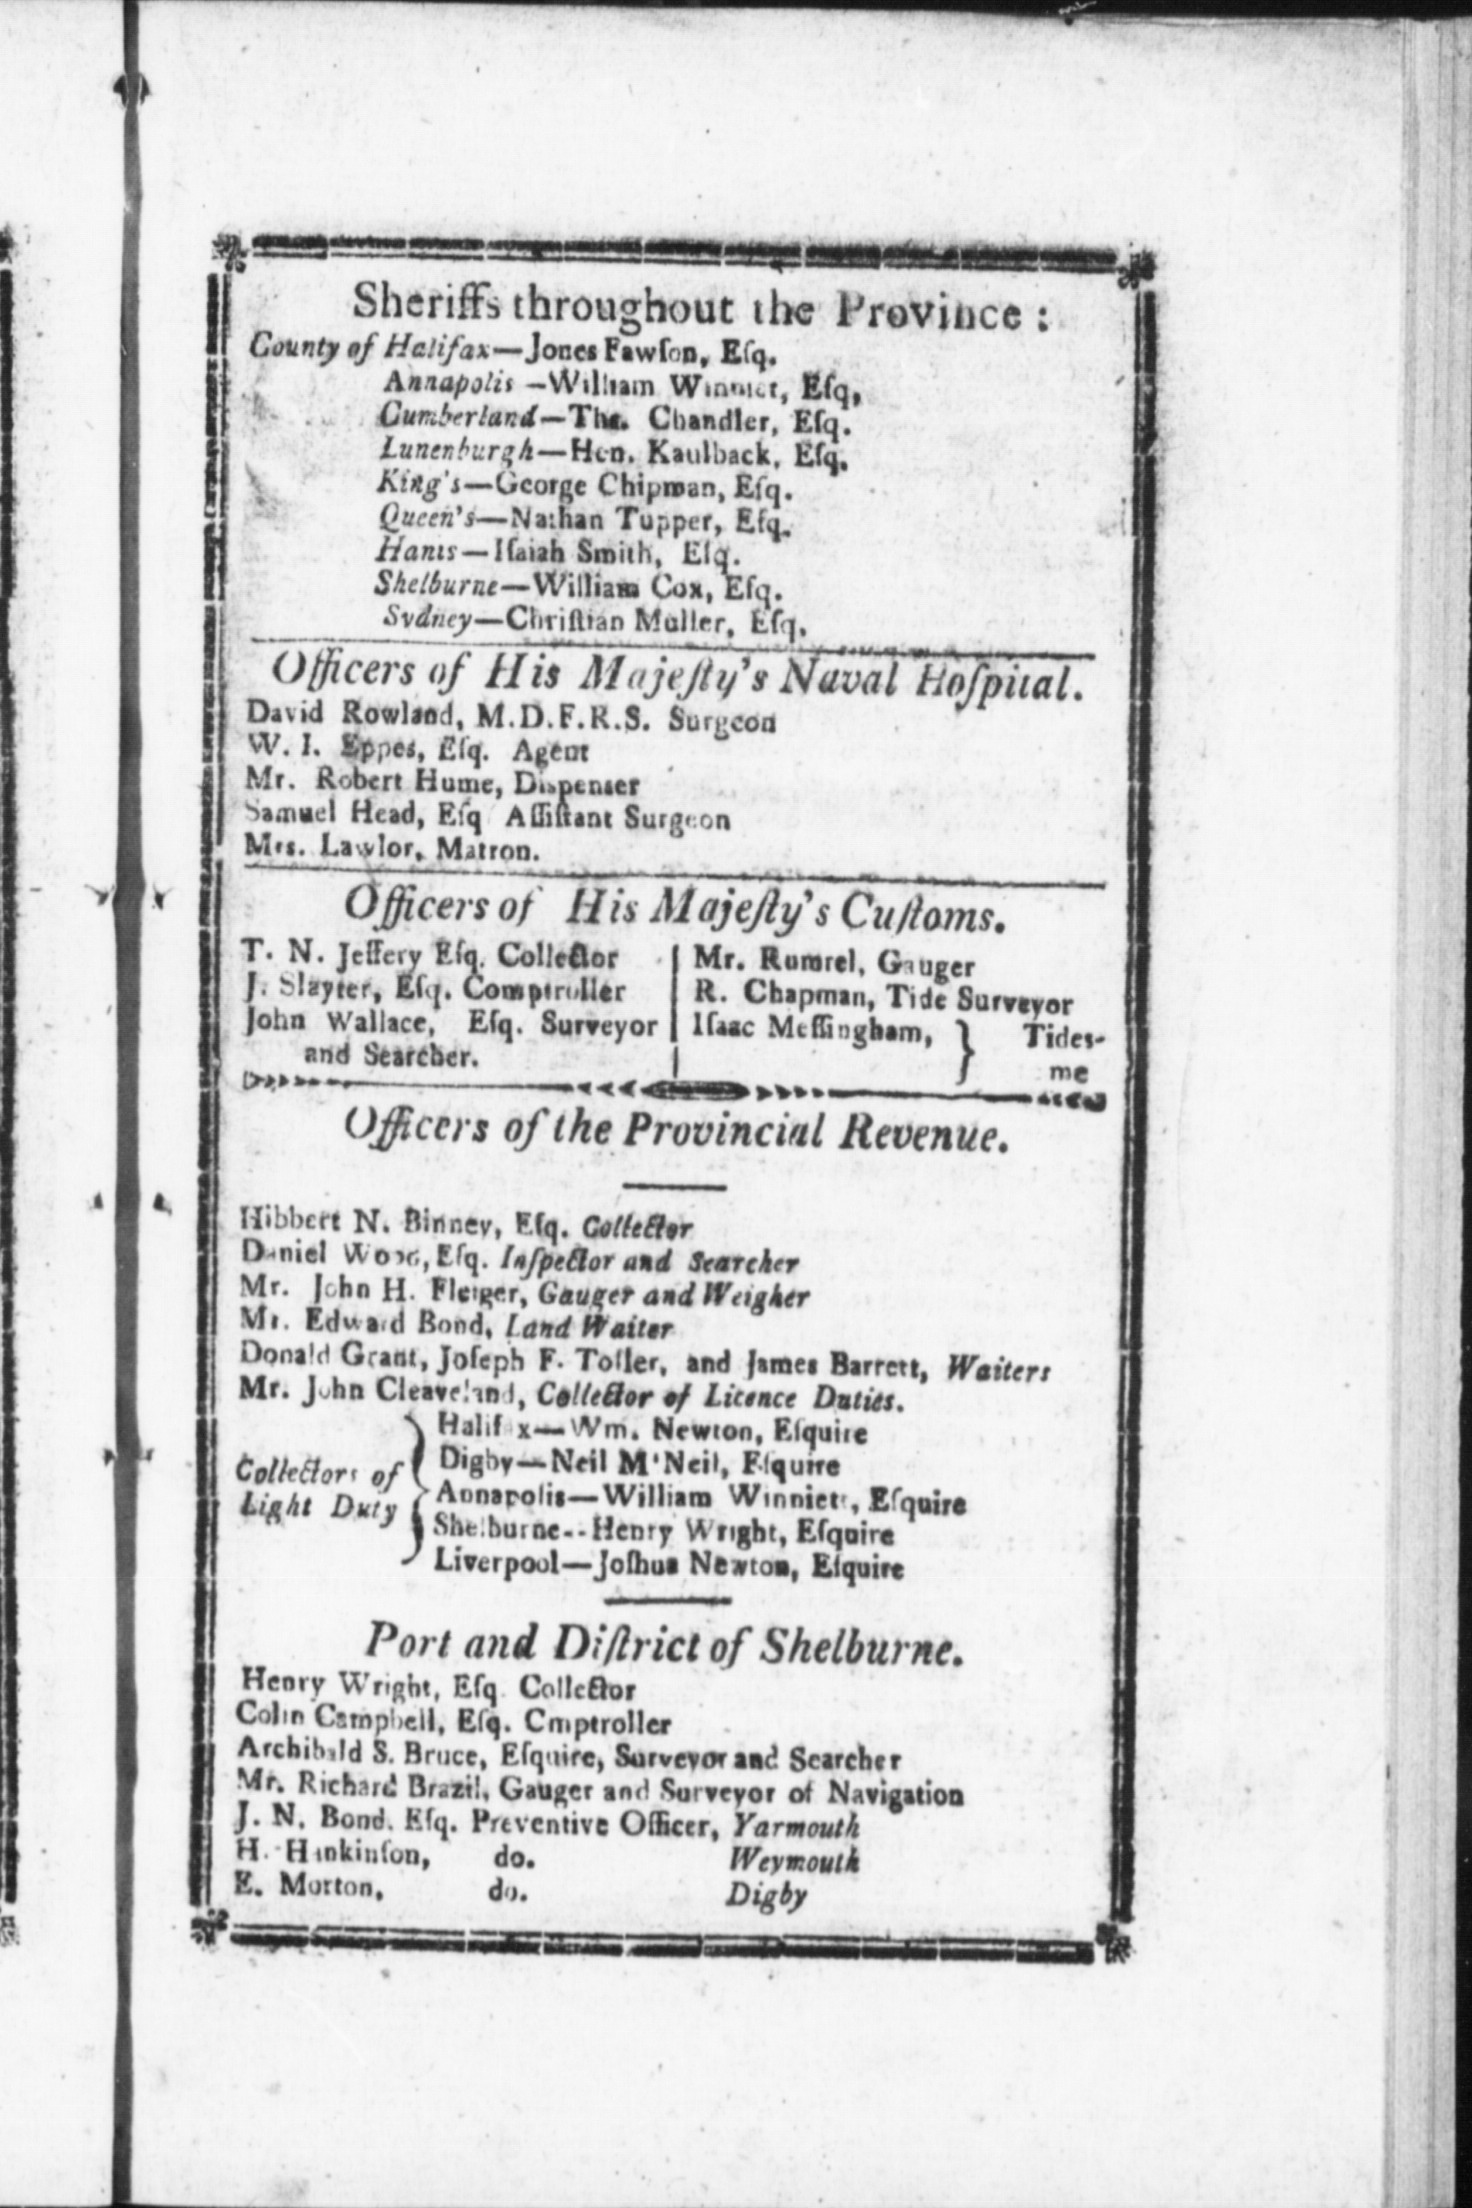 Sheriffs throughout the Province :
County of Halifax—Jones Fawſon, Eſq.
Annapolis —William Winniet, Eſq,
Cumberland—Tho. Chandler, Eſq.
Lunenburgh—Hen. Kaulback, Eſq.
King's—George Chipman, Eſq.
Queen's—Nathan Tupper, Eſq.
Hants—Iſaiah Smith, Eſq.
Shelburne—William Cox, Eſq.
Sydney—Chriſtian Muller, Eſq.
Officers of His Majeſty's Naval Hoſpital.
David Rowland, M.D.F.R.S. Surgeon
W. I. Eppes, Eſq. Agent
Mr. Robert Hume, Dispenser
Samuel Head, Eſq Aſſiſtant Surgeon
Mrs. Lawlor, Matron.
Officers of His Majeſty's Cuſtoms.
T. N. Jeffery Eſq. Collector
J. Slayter, Eſq. Comptroller
John Wallace, Eſq. Surveyor
and Searcher.
Mr. Rumrel, Gauger
R. Chapman, Tide Surveyor
Iſaac Meſſingham, } Tides-
me
Officers of the Provincial Revenue.
Hibbert N. Binney, Eſq. Collector
Daniel Wood, Eſq. Inſpector and Searcher
Mr. John H. Fleiger, Gauger and Weigher
Mr. Edward Bond, Land Waiter
Donald Grant, Joſeph F. Toſler, and James Barrett, Waiters
Mr. John Cleaveland, Collector of Licence Duties.
Collectors of
Light Duty
Halifax—Wm. Newton, Eſquire
Digby—Neil M'Neil, Eſquire
Annapolis—William Winniett, Eſquire
Shelburne--Henry Wright, Eſquire
Liverpool—Joſhua Newton, Eſquire
Port and Diſtrict of Shelburne.
Henry Wright, Eſq. Collector
Colin Campbell, Eſq. Cmptroller
Archibald S. Bruce, Eſquire, Surveyor and Searcher
Mr. Richard Brazil, Gauger and Surveyor of Navigation
J. N. Bond, Eſq. Preventive Officer, Yarmouth
H. Hankinſon, do. Weymouth
E. Morton, do. Digby